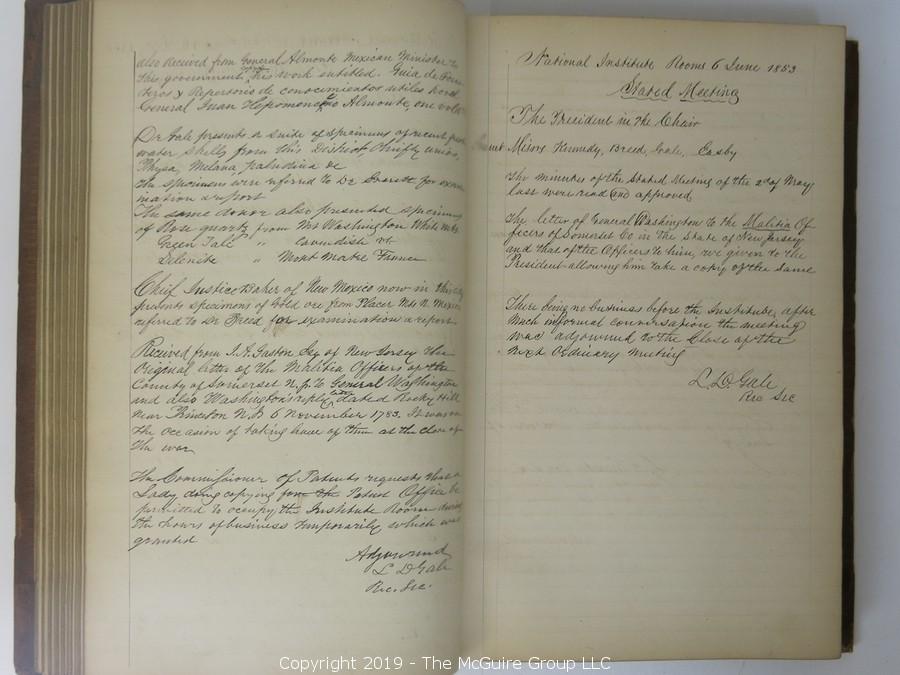 also received from General Almonte Mexican Minister to
this government his work entitled. Guia de Foras
teros y Repertorio de conocimientos utiles por el
General Juan Nepomoncno Almonte, one vol
Dr Gale presents a suite of specimens of recent fresh
water shells from this District,
Physa, Melana, paludina &c
The specimens were referred to Dr for exam
ination & report
The same donor also presented specimens
of Rose quartz from Mt Washington White Mts
Green Talc " Cavendish Vt.
Selenite " Mont Matre France
Chief Justice Baker of New Mexico now in this city
presents specimens of Gold ore from Placer Mts N. Mexico
referred to Dr Breed for examination & report
Received from Gaston Esq of New Jersey the
Original letter of the Malitia Officers of the
County of Somerset N.J. to General Washington
and also Washington's reply dated Rocky Hill
near Princeton N.J. 6 November 1783. It was on
the occasion of taking leave of them at the close of
the war
The Commissioner of Patents requests that a
Lady doing copying for the Patent Office be
permitted to occupy the Institute Room during
the hours of business temporarily which was
granted
Adjourned
L D Gale
Rec. Sec.
National Institute Rooms 6 June 1853
Stated Meeting
The President in the Chair
Present Missrs Kennedy, Breed, Gale, Easby
The minutes of the Stated Meeting of the 2d of May
last were read and approved
The letter of General Washington to the Malitia Of
ficers of Somerset Co in the State of New Jersey
and that of the Officers to him, were given to the
President allowing him take a copy of the same
There being no business before the Institute, after
much informal conversation the meeting
was adjourned to the Close of the
next Ordinary meeting
L. D Gale
Rec Sec
Copyright 2019 - The McGuire Group LLC